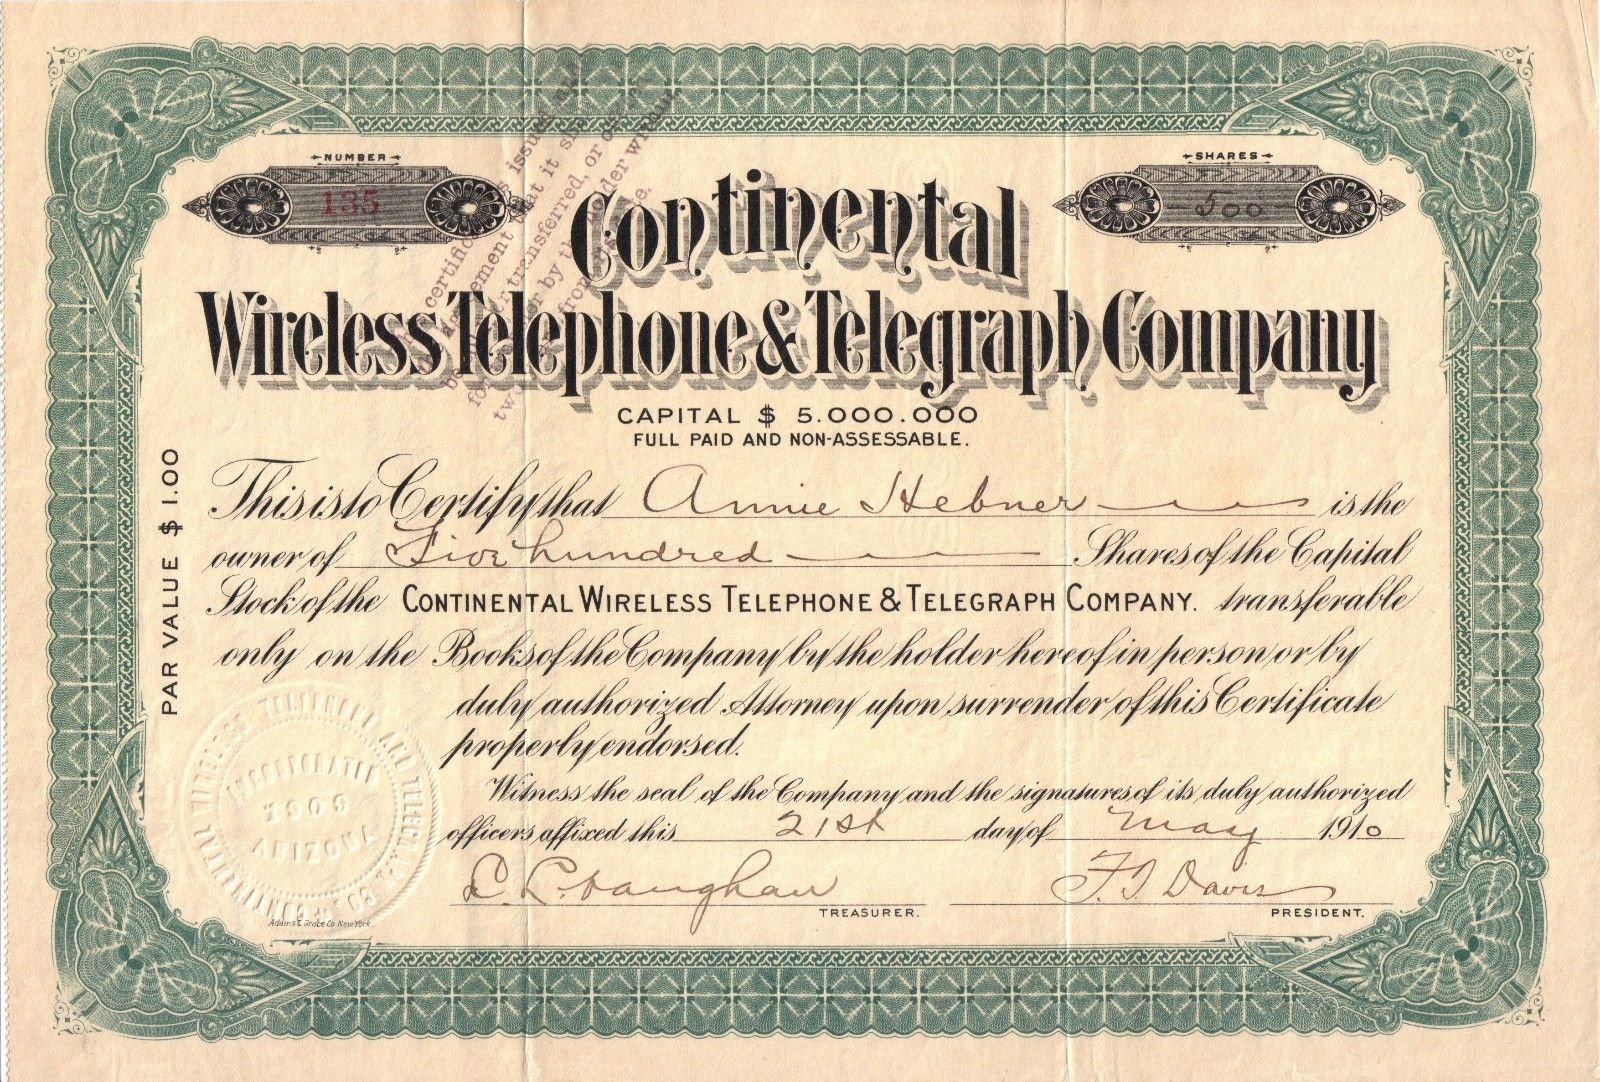 NUMBER
135
SHARES
500
This certificate is issued under
the agreement that it shall not
be sold or transferred, or offered
for sale or by the holder within
two years from its date.
Continental
Wireless Telephone & Telegraph Company
CAPITAL $ 5.000.000
FULL PAID AND NON-ASSESSABLE.
PAR VALUE $ 1.00
This is to Certify that Annie Hebner is the
owner of Five hundred Shares of the Capital
Stock of the CONTINENTAL WIRELESS TELEPHONE & TELEGRAPH COMPANY. transferable
only on the Books of the Company by the holder hereof in person or by
duly authorized Attorney upon surrender of this Certificate
properly endorsed.
Witness the seal of the Company and the signatures of its duly authorized
officers affixed this 21st day of May 1910
C. L. Vaughan
TREASURER.
F. J. Davis
PRESIDENT.
CONTINENTAL WIRELESS TELEPHONE AND TELEGRAPH CO.
INCORPORATED
1909
ARIZONA
Adams & Grace Co New York.